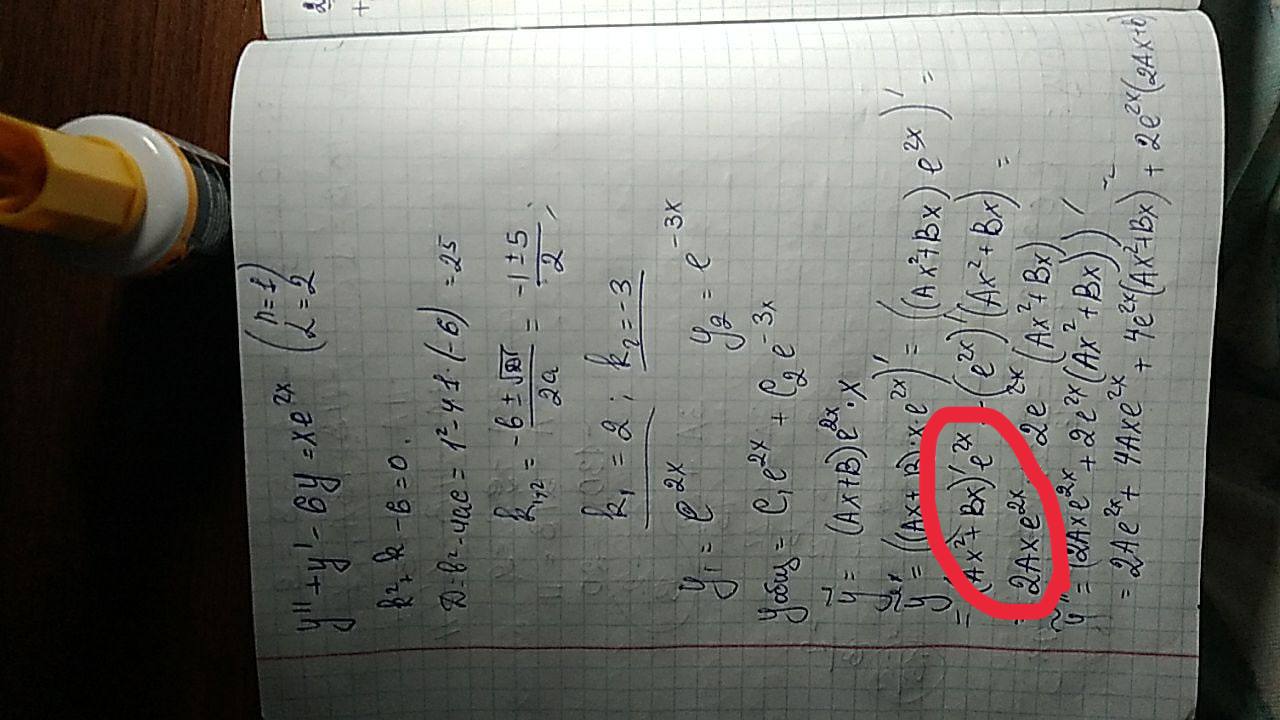 y'' + y' - 6y = xe^{2x} (n=1 α=2)
k² + k - 6 = 0.
D = b² - 4ac = 1² - 4·1·(-6) = 25
k_{1,2} = \frac{-b ± √D}{2a} = \frac{-1 ± 5}{2};
k₁ = 2; k₂ = -3
y₁ = e^{2x} y₂ = e^{-3x}
y общ = C₁e^{2x} + C₂e^{-3x}
ỹ = (Ax+B)e^{2x}·x
y' = ((Ax+B)·xe^{2x})' = ((Ax²+Bx)e^{2x})' =
= (Ax²+Bx)'e^{2x} + (e^{2x})'(Ax²+Bx) =
= 2Axe^{2x} + 2e^{2x}(Ax²+Bx)
ỹ'' = (2Axe^{2x} + 2e^{2x}(Ax²+Bx))' =
= 2Ae^{2x} + 4Axe^{2x} + 4e^{2x}(Ax²+Bx) + 2e^{2x}(2Ax+b)